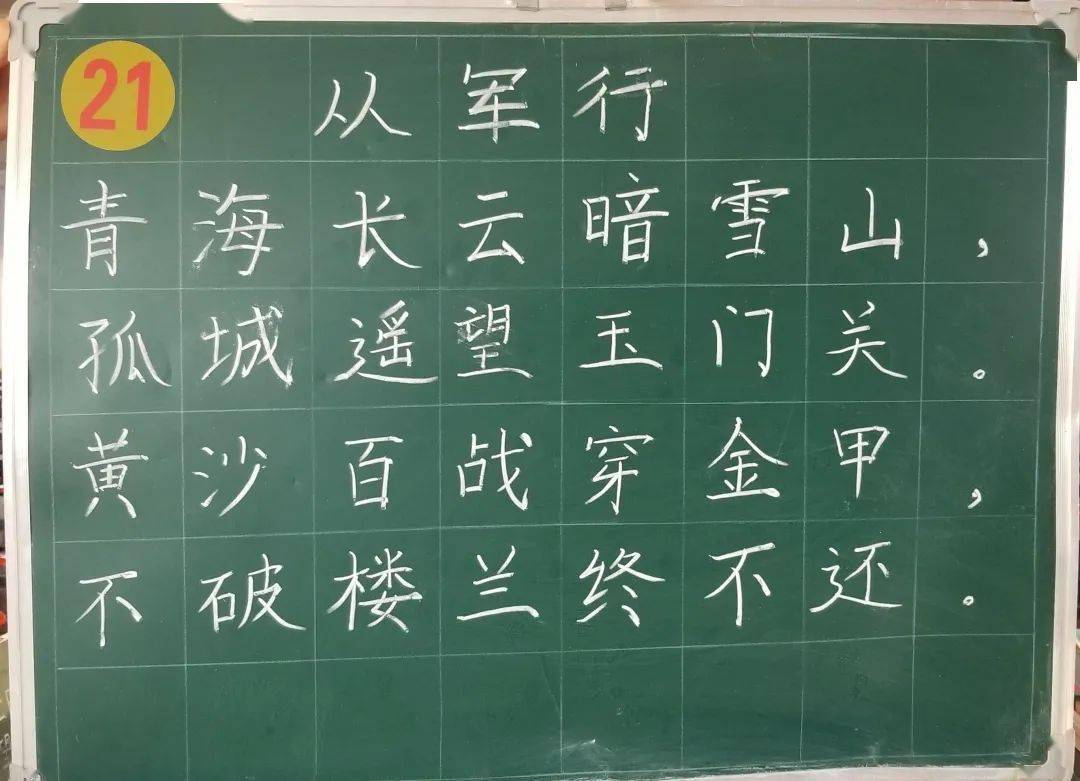 21
从军行
青海长云暗雪山，
孤城遥望玉门关。
黄沙百战穿金甲，
不破楼兰终不还。